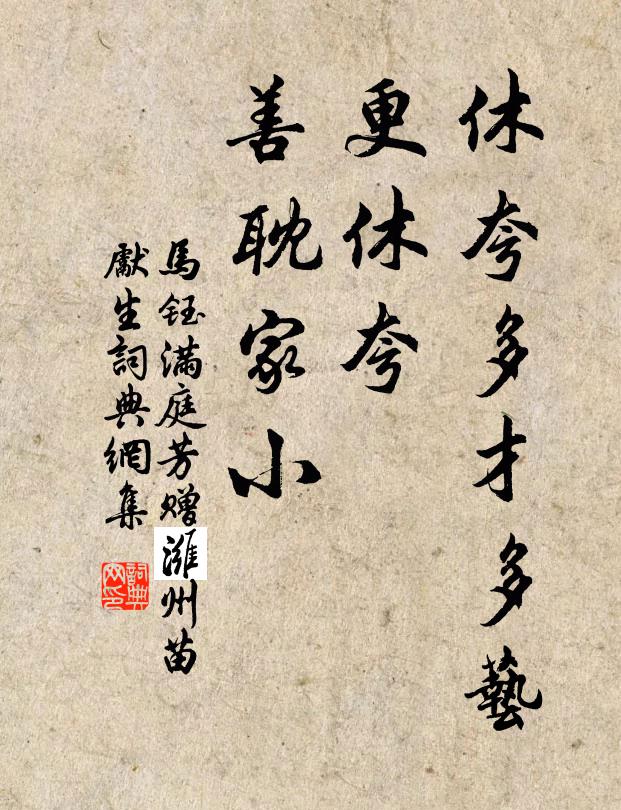 休夸多才多藝
更休夸
善耽家小
馬鈺滿庭芳贈濰州苗
獻生詞典網集
詞典网印